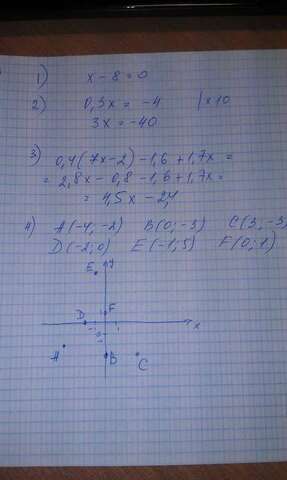 1) x - 8 = 0
2) 0,3x = -4 | x 10
3x = -40
3) 0,4(7x-2) - 1,6 + 1,7x =
= 2,8x - 0,8 - 1,6 + 1,7x =
= 4,5x - 2,4
4) A(-4, -2) B(0; -3) C(3; -3)
D(-2; 0) E(-1; 5) F(0; 1)
E y
F
D x
A B C